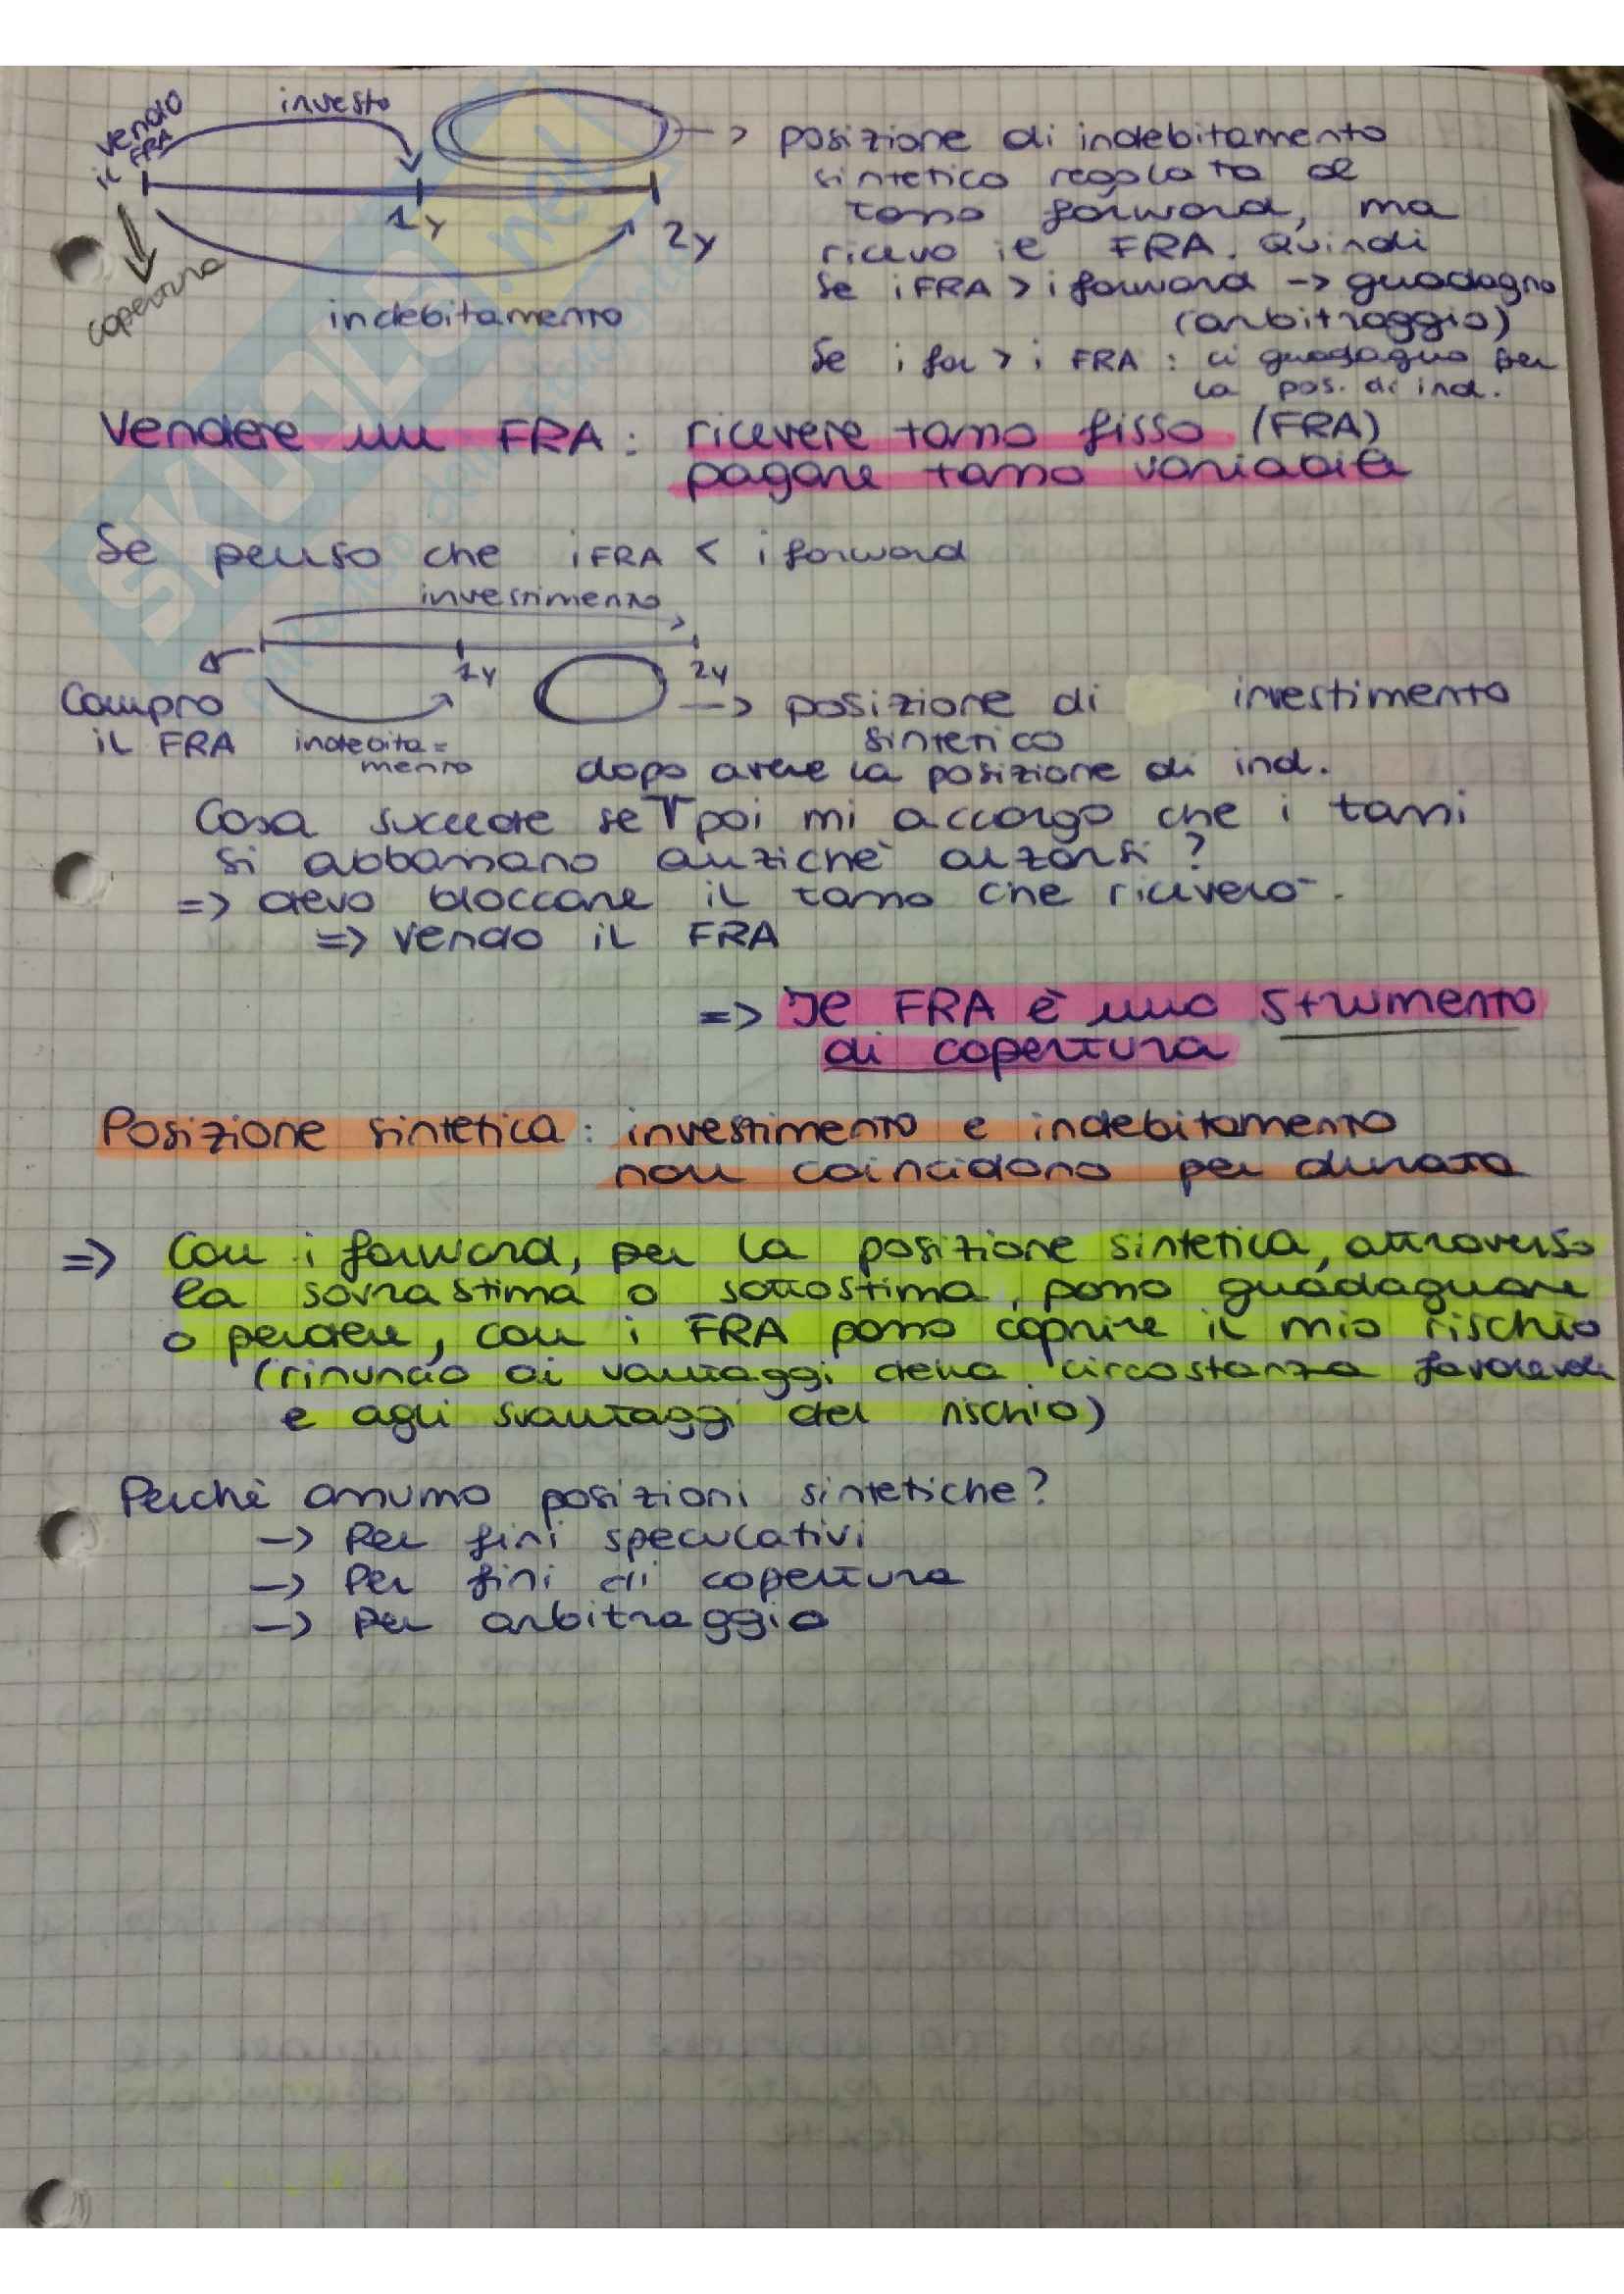 vendo
il FRA
investo
1y
2y
copertura
indebitamento
-> posizione di indebitamento
sintetico regolata al
tasso forward, ma
ricevo il FRA. Quindi
Se i FRA > i forward -> guadagno
(arbitraggio)
Se i for > i FRA : ci guadagno per
la pos. di ind.
Vendere un FRA : ricevere tasso fisso (FRA)
pagare tasso variabile
Se penso che i FRA < i forward
investimento
1y
2y
Compro
il FRA
indebita=
mento
-> posizione di investimento
sintetico
dopo avere la posizione di ind.
Cosa succede se poi mi accorgo che i tassi
si abbassano anziché alzarsi ?
=> devo bloccare il tasso che riceverò.
=> vendo il FRA
=> Il FRA è uno strumento
di copertura
Posizione sintetica : investimento e indebitamento
non coincidono per durata
=> Con i forward, per la posizione sintetica, attraverso
la sovrastima o sottostima, posso guadagnare
o perdere, con i FRA posso coprire il mio rischio
(rinuncio ai vantaggi della circostanza favorevole
e agli svantaggi del rischio)
Perchè assumo posizioni sintetiche?
-> Per fini speculativi
-> Per fini di copertura
-> Per arbitraggio
SKUOLA.net